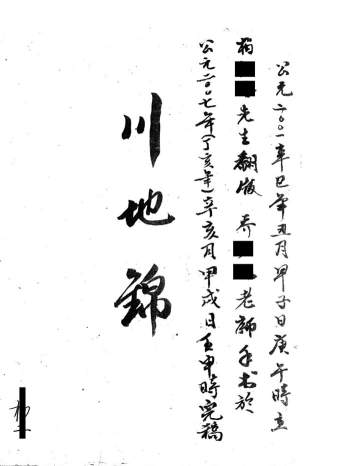 公元二〇〇一年辛巳年丑月甲子日庚午時立
楊 先生翻版 乔 老師手书於
公元二〇〇七年丁亥年辛亥月甲戌日壬申時完稿
川地錦